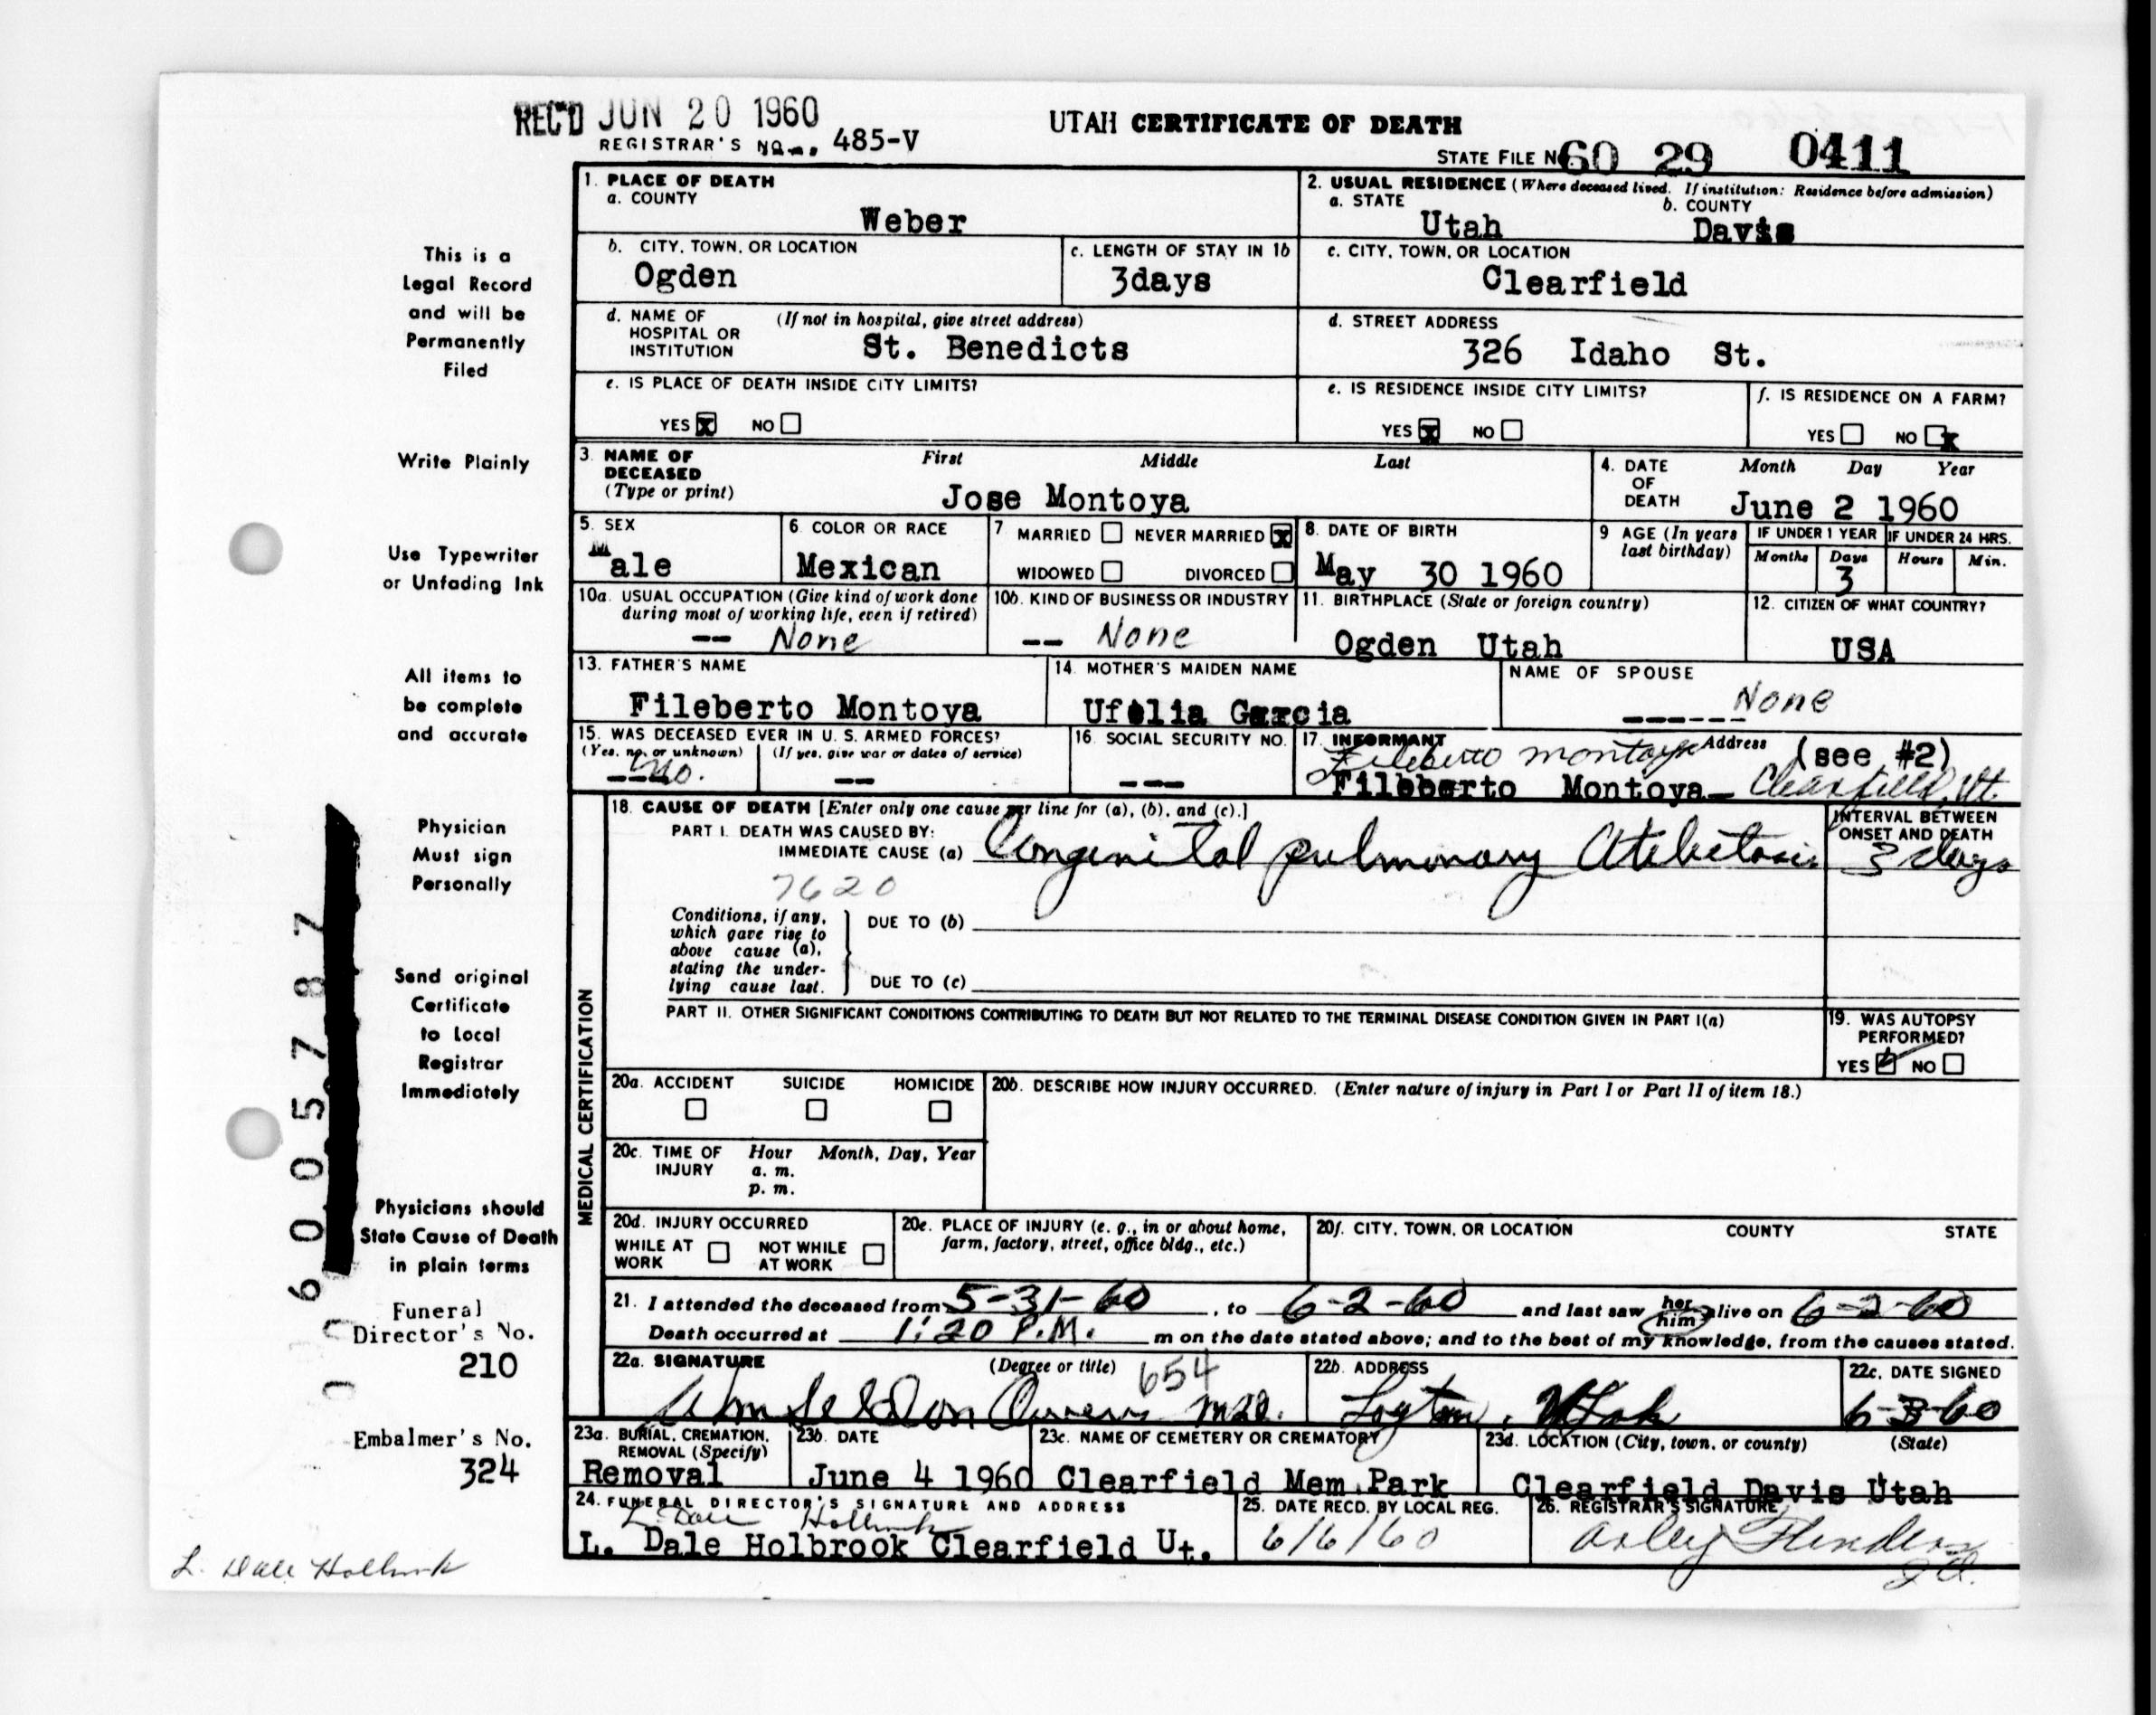 REC'D JUN 20 1960
UTAH CERTIFICATE OF DEATH
REGISTRAR'S No. 485-V
STATE FILE No. 60 29 0411
This is a
Legal Record
and will be
Permanently
Filed
Write Plainly
Use Typewriter
or Unfading Ink
All items to
be complete
and accurate
Physician
Must sign
Personally
Send original
Certificate
to Local
Registrar
Immediately
Physicians should
State Cause of Death
in plain terms
Funeral
Director's No.
210
Embalmer's No.
324
L. Dale Holbrook
6005787
1. PLACE OF DEATH
a. COUNTY
Weber
2. USUAL RESIDENCE (Where deceased lived. If institution: Residence before admission)
a. STATE b. COUNTY
Utah Davis
b. CITY, TOWN, OR LOCATION
Ogden
c. LENGTH OF STAY IN 1b
3days
c. CITY, TOWN, OR LOCATION
Clearfield
d. NAME OF (If not in hospital, give street address)
HOSPITAL OR
INSTITUTION St. Benedicts
d. STREET ADDRESS
326 Idaho St.
e. IS PLACE OF DEATH INSIDE CITY LIMITS?
YES X NO
e. IS RESIDENCE INSIDE CITY LIMITS?
YES X NO
f. IS RESIDENCE ON A FARM?
YES NO X
3. NAME OF First Middle Last
DECEASED
(Type or print) Jose Montoya
4. DATE Month Day Year
OF
DEATH June 2 1960
5. SEX
Male
6. COLOR OR RACE
Mexican
7 MARRIED NEVER MARRIED X
WIDOWED DIVORCED
8. DATE OF BIRTH
May 30 1960
9 AGE (In years
last birthday)
IF UNDER 1 YEAR IF UNDER 24 HRS.
Months Days Hours Min.
3
10a. USUAL OCCUPATION (Give kind of work done
during most of working life, even if retired)
-- None
10b. KIND OF BUSINESS OR INDUSTRY
-- None
11. BIRTHPLACE (State or foreign country)
Ogden Utah
12. CITIZEN OF WHAT COUNTRY?
USA
13. FATHER'S NAME
Fileberto Montoya
14. MOTHER'S MAIDEN NAME
Ufelia Garcia
NAME OF SPOUSE
------ None
15. WAS DECEASED EVER IN U. S. ARMED FORCES?
(Yes, no, or unknown) (If yes, give war or dates of service)
--- no. --
16. SOCIAL SECURITY NO.
---
17. INFORMANT Address (see #2)
Fileberto Montoya
Fileberto Montoya- Clearfield, Ut.
18. CAUSE OF DEATH [Enter only one cause per line for (a), (b), and (c).]
PART I. DEATH WAS CAUSED BY:
IMMEDIATE CAUSE (a) Congenital pulmonary Atelectasis
7620
INTERVAL BETWEEN
ONSET AND DEATH
3 days
Conditions, if any,
which gave rise to
above cause (a),
stating the under-
lying cause last.
DUE TO (b)
DUE TO (c)
PART II. OTHER SIGNIFICANT CONDITIONS CONTRIBUTING TO DEATH BUT NOT RELATED TO THE TERMINAL DISEASE CONDITION GIVEN IN PART I(a)
19. WAS AUTOPSY
PERFORMED?
YES NO
MEDICAL CERTIFICATION
20a. ACCIDENT SUICIDE HOMICIDE
20b. DESCRIBE HOW INJURY OCCURRED. (Enter nature of injury in Part I or Part II of item 18.)
20c. TIME OF Hour Month, Day, Year
INJURY a. m.
p. m.
20d. INJURY OCCURRED
WHILE AT NOT WHILE
WORK AT WORK
20e. PLACE OF INJURY (e. g., in or about home,
farm, factory, street, office bldg., etc.)
20f. CITY, TOWN, OR LOCATION COUNTY STATE
21. I attended the deceased from 5-31-60, to 6-2-60 and last saw her him alive on 6-2-60
Death occurred at 1:20 P.M. m on the date stated above; and to the best of my knowledge, from the causes stated.
22a. SIGNATURE (Degree or title) 654
Owens M.D.
22b. ADDRESS
Layton, Utah
22c. DATE SIGNED
6-3-60
23a. BURIAL, CREMATION,
REMOVAL (Specify)
Removal
23b. DATE
June 4 1960
23c. NAME OF CEMETERY OR CREMATORY
Clearfield Mem Park
23d. LOCATION (City, town, or county) (State)
Clearfield Davis Utah
24. FUNERAL DIRECTOR'S SIGNATURE AND ADDRESS
L. Dale Holbrook
L. Dale Holbrook Clearfield Ut.
25. DATE RECD. BY LOCAL REG.
6/6/60
26. REGISTRAR'S SIGNATURE